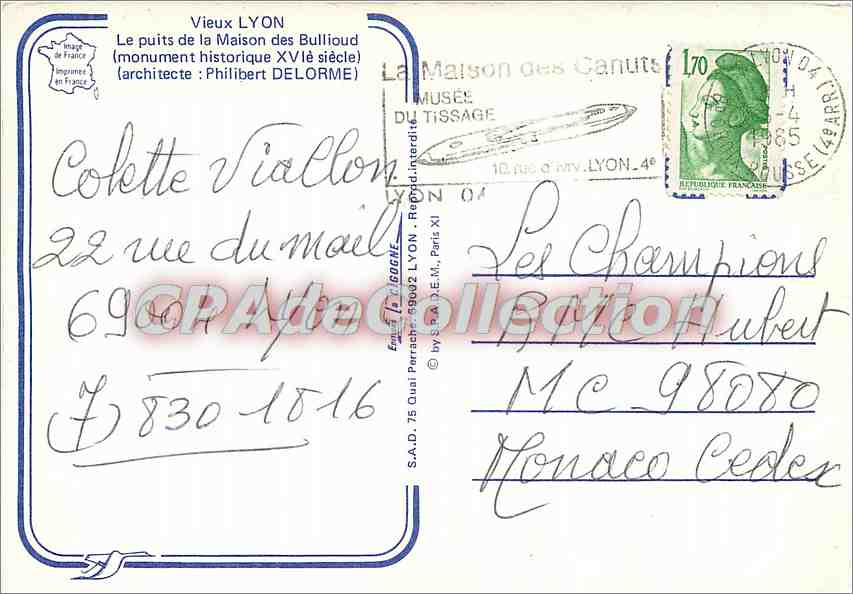 Vieux LYON
Le puits de la Maison des Bullioud
(monument historique XVIè siècle)
(architecte : Philibert DELORME)
Image
de France
Imprimée
en France
Colette Viallon
22 rue du mail
69004 Lyon
(7) 830 1816
S.A.D. 75 Quai Perrache. 69002 LYON . Reprod. interdite
Editions La CIGOGNE
© by S.P.A.D.E.M., Paris XI
La Maison des Canuts
MUSÉE
DU TISSAGE
10, rue d'Ivry. LYON_4e
LYON 04
1,70
POSTES
REPUBLIQUE FRANÇAISE
LYON 04 (4e ARR)
-4
1985
ROUSSE
Les Champions
RMC Hubert
MC 98080
Monaco Cedex
CPAdeCollection